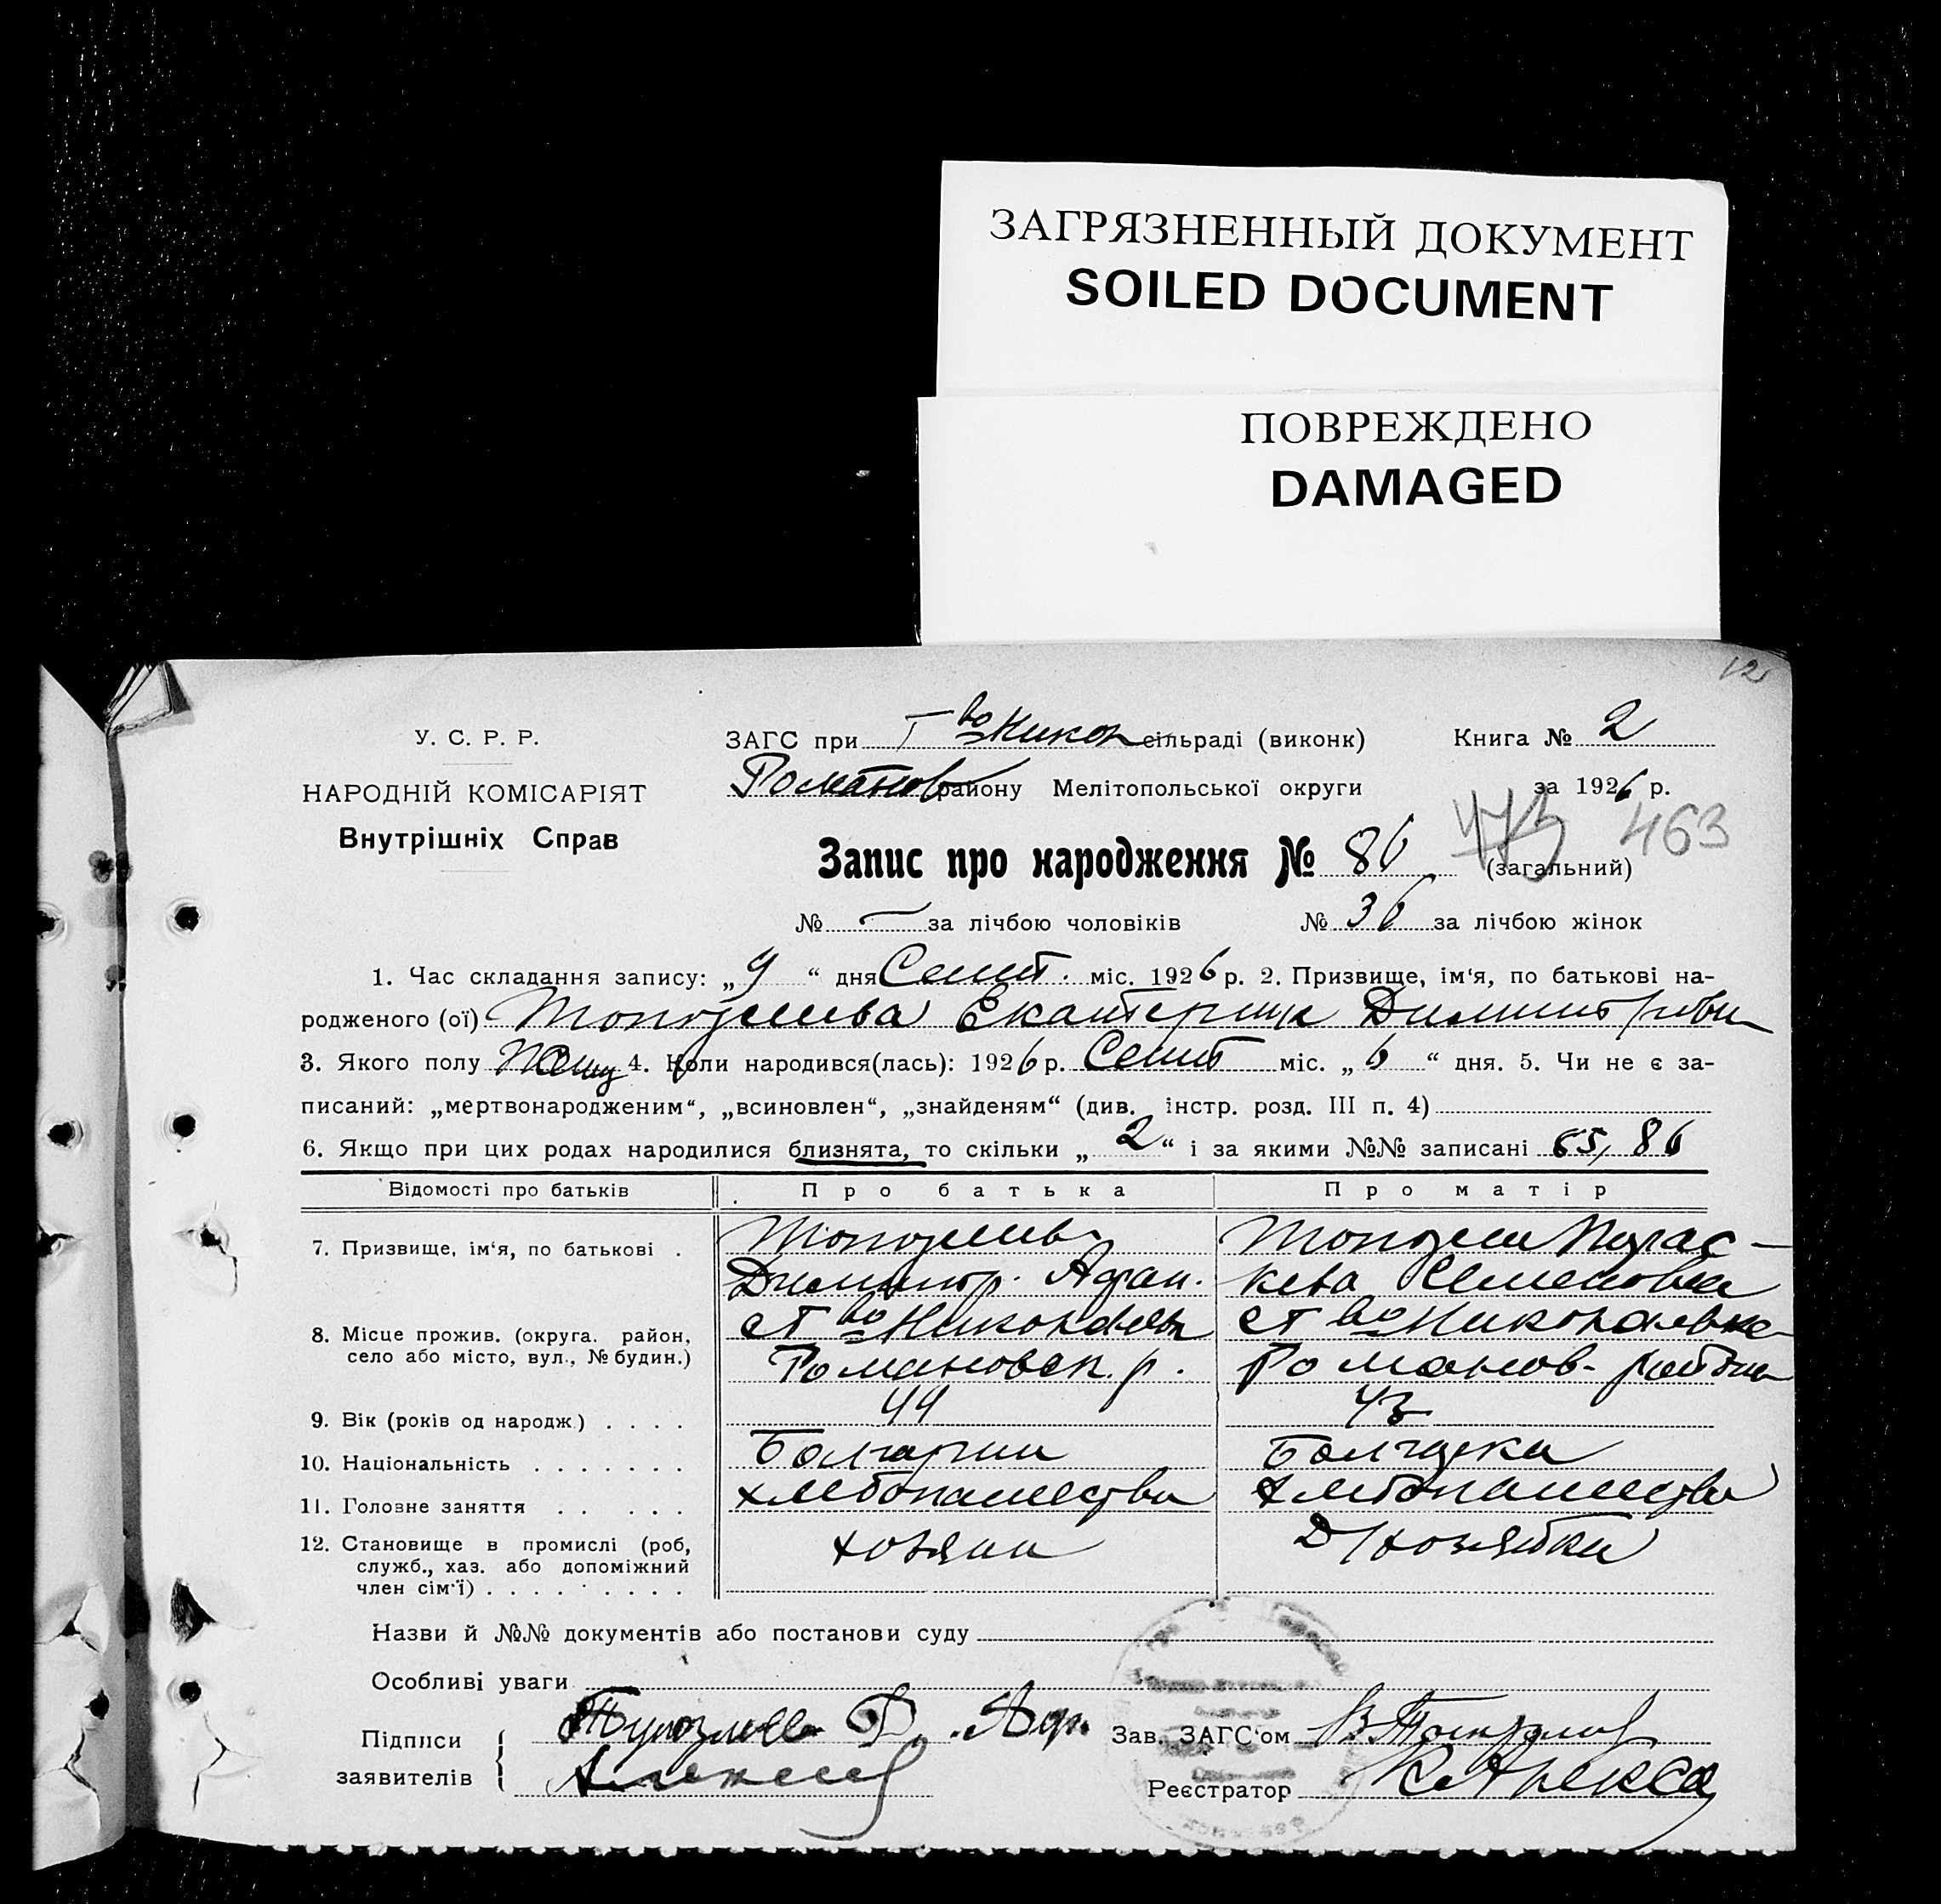 ЗАГРЯЗНЕННЫЙ ДОКУМЕНТ
SOILED DOCUMENT
ПОВРЕЖДЕНО
DAMAGED
12
У. С. Р. Р.
НАРОДНІЙ КОМІСАРІЯТ
Внутрішніх Справ
ЗАГС при Т во Никол сільраді (виконк)
Книга № 2
Романов району Мелітопольської округи
за 1926 р.
473 463
Запис про народження № 86 (загальний)
№ — за лічбою чоловіків № 36 за лічбою жінок
1. Час складання запису: „9“ дня Сент. міс. 1926 р. 2. Призвище, ім'я, по батькові на-
родженого (ої) Екатерина
3. Якого полу 4. Коли народився(лась): 1926 р. Сент міс. „6“ дня. 5. Чи не є за-
писаний: „мертвонародженим“, „всиновлен“, „знайденям“ (див. інстр. розд. III п. 4)
6. Якщо при цих родах народилися близнята, то скільки „2“ і за якими №№ записані 85, 86
Відомості про батьків Про батька Про матір
7. Призвище, ім'я, по батькові .
Димитр. Афан. Парас-
кева Семеновна
8. Місце прожив. (округа. район,
село або місто, вул., № будин.)
ст во Николаевка
Романовск. р. Романов- района
9. Вік (років од народж.) . . . . 44 43
10. Національність . . . . . . . Болгарин Болгарка
11. Головне заняття . . . . . хлебопашество хлебопашество
12. Становище в промислі (роб,
служб., хаз. або допоміжний
член сім'ї) . . . . . . . . .
хозяин Д/хозяйка
Назви й №№ документів або постанови суду
Особливі уваги
Підписи
заявителів
Д. Аф.
Зав. ЗАГС'ом
Реєстратор